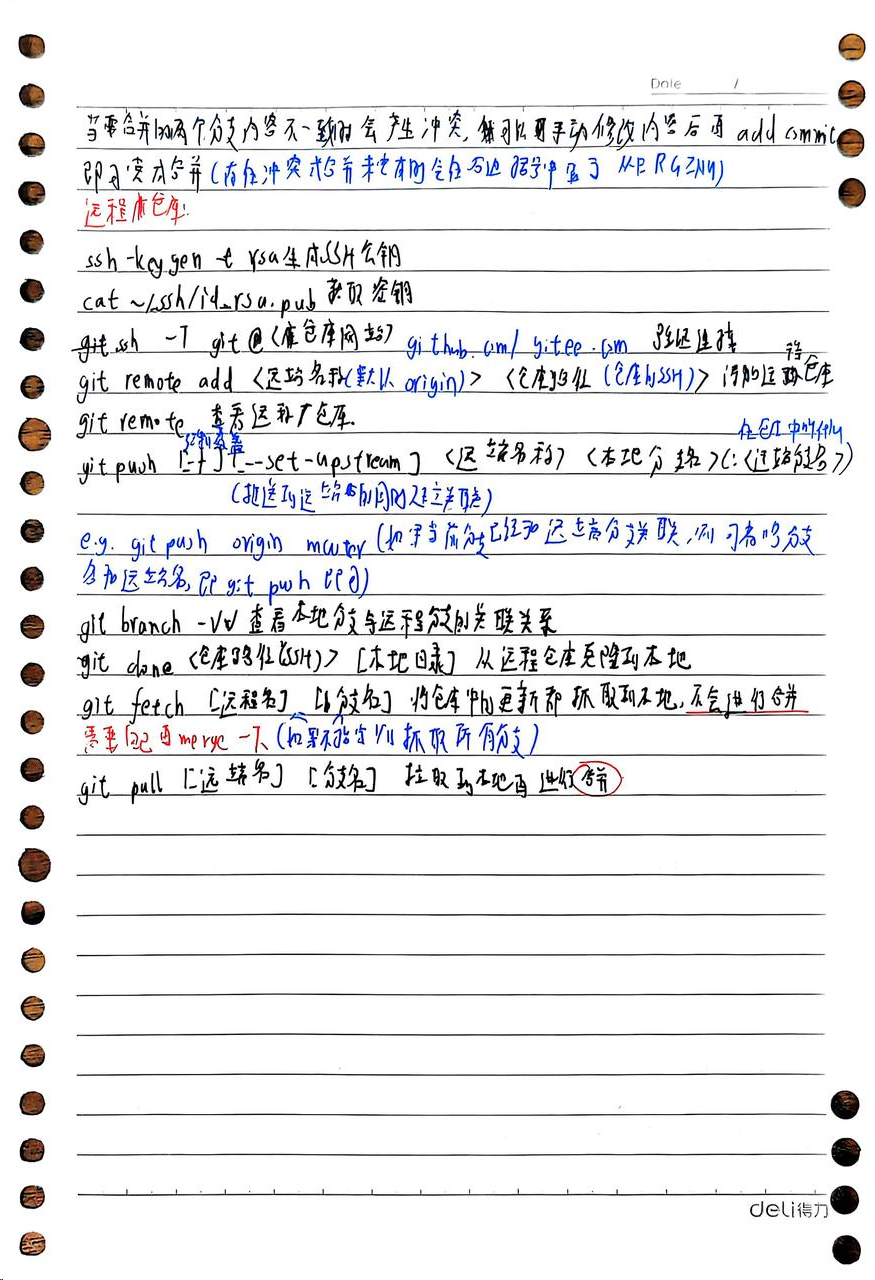 Date /
当需合并的两个分支内容不一致时会产生冲突,可以用手动修改内容后再 add commit
即可完成合并(存在冲突或合并未完成时会在旁边括号中显示 MERGING)
远程库仓库:
ssh-keygen -t rsa 生成SSH公钥
cat ~/.ssh/id_rsa.pub 获取密钥
ssh -T git@<库仓库网站> github.com/ gitee.com 验证连接
git remote add <远端名称(默认 origin)> <仓库路径(仓库的SSH)> 添加远程仓库
git remote 查看远程仓库.
在仓库中的
强制覆盖
git push [-f] [--set-upstream] <远端名称> <本地分支名>(:<远端分支名>)
(推送到远端的同时建立关联)
e.g. git push origin master (如果当前分支已经和远端分支关联,则可省略分支
名和远端名,即 git push 即可)
git branch -vv 查看本地分支与远程分支的关联关系
git clone <仓库路径(SSH)> [本地目录] 从远程仓库克隆到本地
git fetch [远程名] [分支名] 将仓库中的更新都抓取到本地,不会进行合并
需要自己再merge一下(如果不指定则抓取所有分支)
git pull [远端名] [分支名] 拉取到本地再进行合并
deli得力